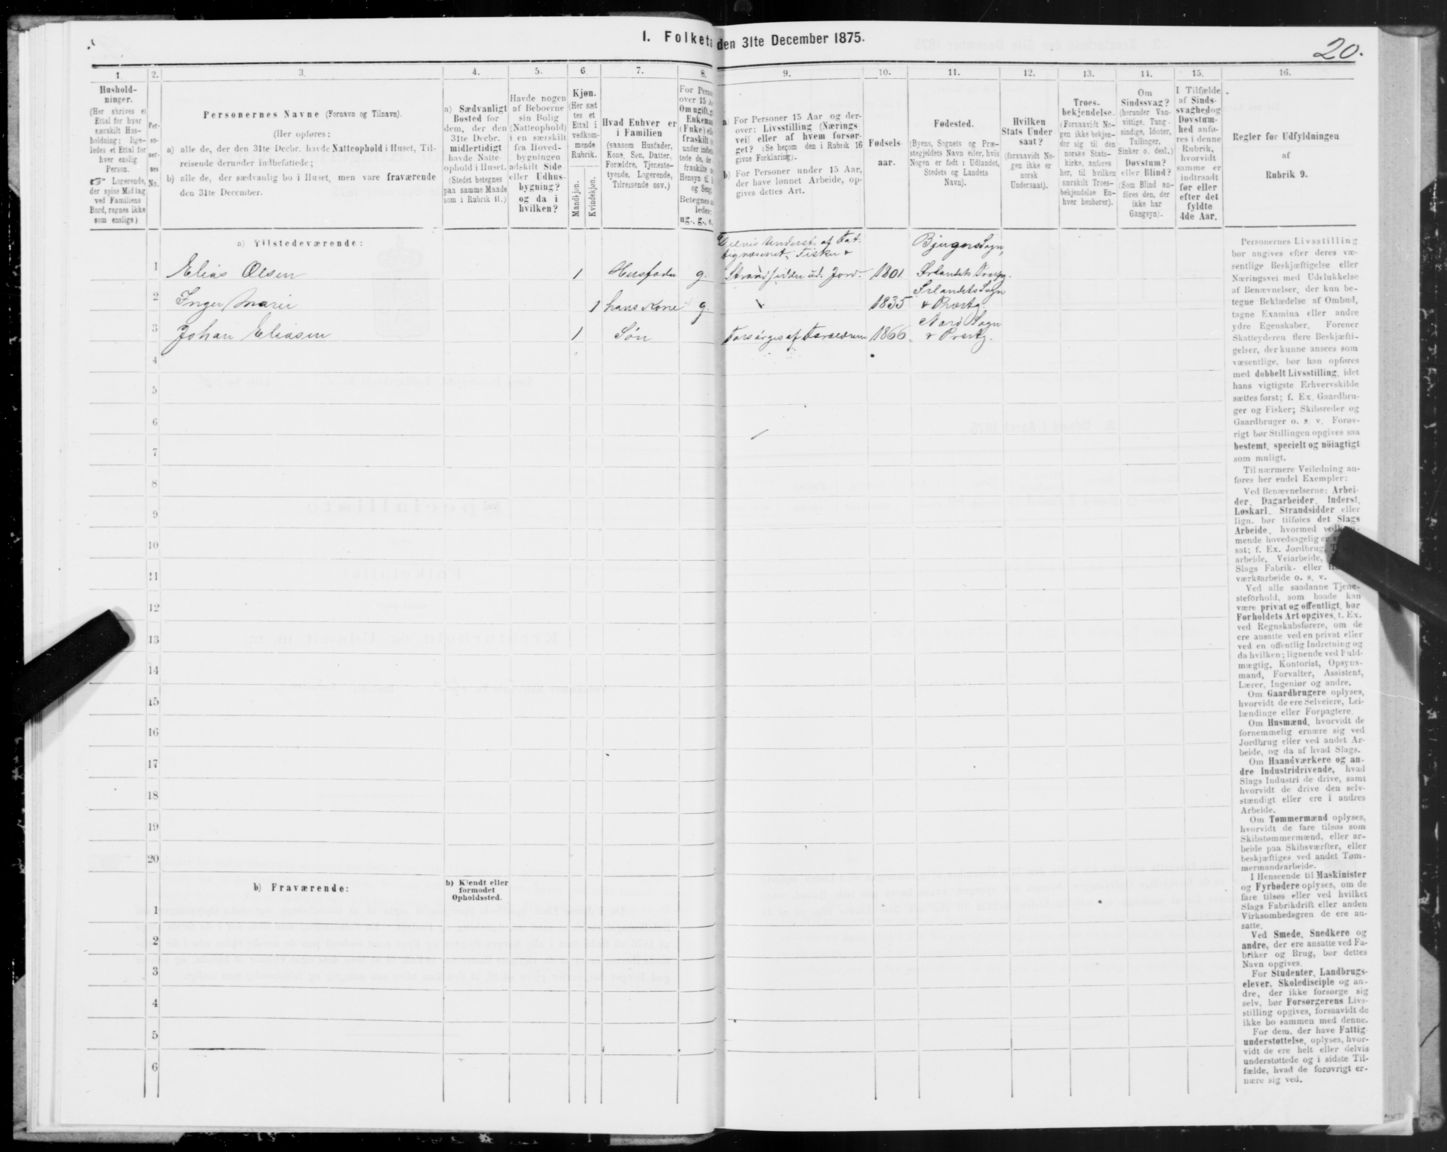 I. Folket
den 31te December 1875.
20.
1.
2.
3.
4.
5.
6
7.
8.
9.
10.
11.
12.
13.
14.
15.
16.
Hushold-
ninger.
(Her skrives et
Ettal for hver
særskilt Hus-
holdning; lige-
ledes et Ettal for
hver enslig
Person.
☞ Logerende,
der spise Middag
ved Familiens
Bord, regnes ikke
som enslige.)
Per-
so-
ner-
nes
No.
Personernes Navne (Fornavn og Tilnavn).
(Her opføres:
a) alle de, der den 31te Decbr. havde Natteophold i Huset, Til-
reisende derunder indbefattede;
b) alle de, der sædvanlig bo i Huset, men vare fraværende
den 31te December.
a) Sædvanligt
Bosted for
dem, der den
31te Decbr.
midlertidigt
havde Natte-
ophold i Huset.
(Stedet betegnes
paa samme Maade
som i Rubrik 11.)
Havde nogen
af Beboerne
sin Bolig
(Natteophold)
i en særskilt
fra Hoved-
bygningen
adskilt Side-
eller Udhus-
bygning?
og da i
hvilken?
Kjøn.
(Her sæt-
tes et
Ettal i
vedkom-
mende
Rubrik.
Mandkjøn.
Kvindekjøn.
Hvad Enhver er
i Familien
(saasom Husfader,
Kone, Søn, Datter,
Forældre, Tjeneste-
tyende, Logerende,
Tilreisende osv.)
For Perso
over 15 A
Om ugift, g
Enkema
(Enke) el
fraskilt
ug., g., e.
a) For Personer 15 Aar og der-
over: Livsstilling (Nærings-
vei) eller af hvem forsør-
get? (Se herom den i Rubrik 16
givne Forklaring).
b) For Personer under 15 Aar,
der have lønnet Arbeide, op-
gives dettes Art.
Fødsels
aar.
Fødested.
(Byens, Sognets og Præ-
stegjeldets Navn eller, hvis
Nogen er født i Udlandet,
Stedets og Landets
Navn).
Hvilken
Stats Under
saat?
(forsaavidt No-
gen ikke er
norsk
Undersaat).
Troes-
bekjendelse.
(Forsaavidt No-
gen ikke bekjen-
der sig til den
norske Stats-
kirke, anføres
her, til hvilken
særskilt Troes-
bekjendelse En-
hver henhører).
Om
Sindssvag?
(herunder Van-
vittige, Tung-
sindige, Idioter,
Tullinger,
Sinker o. desl.)
Døvstum?
eller Blind?
(Som Blind an-
føres den, der
ikke har
Gangsyn).
I Tilfælde
af Sinds-
svaghed og
Døvstum-
hed anfø-
res i denne
Rubrik,
hvorvidt
samme er
indtraadt
før eller
efter det
fyldte
4de Aar.
Regler for Udfyldningen
af
Rubrik 9.
a) Tilstedeværende:
1 Elias Olsen 1 Husfader g.
Delvis Underst. af Fat-
tigvæsenet. Fisker &
Strandsidder ud. Jord. 1801
Bjugns Sogn,
Ørlandets Prestg.
2 Inger Marie 1 hans Kone g 1835
Ørlandets Sogn
& Præstg.
3 Johan Eliasen 1 Søn Forsørges af Forældrene 1866.
Sogn
& Prestg.
4
5
6
7
8
9
10
11
12
13
14
15
16
17
18
19
20
b) Fraværende:
b) Kjendt eller
formodet
Opholdssted.
1
2
3
4
5
6
Personernes Livsstilling
bør angives efter deres væ-
sentlige Beskjæftigelse eller
Næringsvei med Udelukkelse
af Benævnelser, der kun be-
tegne Beklædelse af Ombud,
tagne Examina eller andre
ydre Egenskaber. Forener
Skatteyderen flere Beskjæfti-
gelser, der kunne ansees som
væsentlige, bør han opføres
med dobbelt Livsstilling, idet
hans vigtigste Erhvervskilde
sættes først; f. Ex. Gaardbru-
ger og Fisker; Skibsreder og
Gaardbruger o. s. v. Forøv-
rigt bør Stillingen opgives saa
bestemt, specielt og nöiagtigt
som muligt.
Til nærmere Veiledning an-
føres her endel Exempler:
Ved Benævnelserne: Arbei-
der, Dagarbeider, Inderst,
Løskarl, Strandsidder eller
lign. bør tilføies det Slags
Arbeide, hvormed
mende hovedsagelig er
sat; f. Ex. Jordbrug,
arbeide, Veiarbeide,
Slags Fabrik- eller
værksarbeide o. s. v.
Ved alle saadanne Tjene-
steforhold, som baade kan
være privat og offentligt, bør
Forholdets Art opgives, f. Ex.
ved Regnskabsførere, om de
ere ansatte ved en privat eller
ved en offentlig Indretning og
da hvilken; lignende ved Fuld-
mægtig, Kontorist, Opsyns-
mand, Forvalter, Assistent,
Lærer, Ingeniør og andre.
Om Gaardbrugere oplyses,
hvorvidt de ere Selveiere, Lei-
lændinge eller Forpagtere.
Om Husmænd, hvorvidt de
fornemmelig ernære sig ved
Jordbrug eller ved andet Ar-
beide, og da af hvad Slags.
Om Haandværkere og an-
dre Industridrivende, hvad
Slags Industri de drive, samt
hvorvidt de drive den selv-
stændigt eller ere i andres
Arbeide.
Om Tømmermænd oplyses,
hvorvidt de fare tilsøs som
Skibstømmermænd, eller ar-
beide paa Skibsværfter, eller
beskjæftiges ved andet Tøm-
mermandsarbeide.
I Henseende til Maskinister
og Fyrbødere oplyses, om de
fare tilsøs eller ved hvilket
Slags Fabrikdrift eller anden
Virksomhedsgren de ere an-
satte.
Ved Smede, Snedkere og
andre, der ere ansatte ved Fa-
briker og Brug, bør dettes
Navn opgives.
For Studenter, Landbrugs-
elever, Skoledisciple og an-
dre, der ikke forsørge sig
selv, bør Forsørgerens Livs-
stilling opgives, forsaavidt de
ikke bo sammen med denne.
For dem, der have Fattig-
understøttelse, oplyses, hvor-
vidt de ere helt eller delvis
understøttede og i sidste Til-
fælde, hvad de forøvrigt er-
nære sig ved.